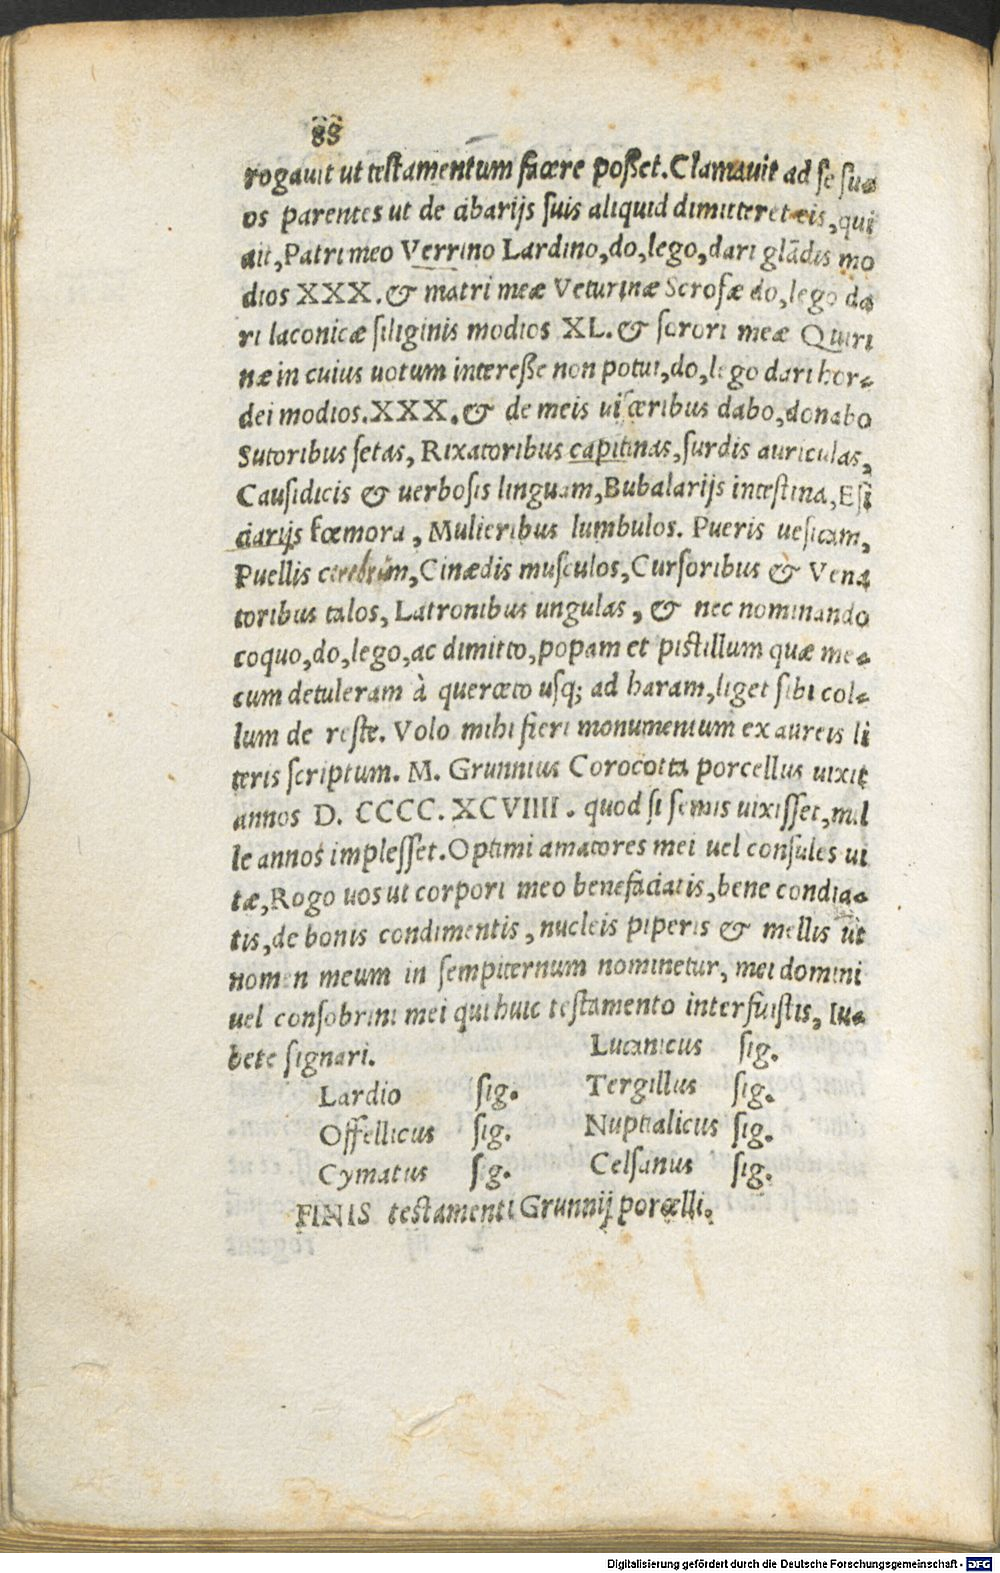 88
rogauit ut testamentum facere posset. Clamauit ad se su-
os parentes ut de cibarijs suis aliquid dimitteret eis, qui
ait, Patri meo Verrino Lardino, do, lego, dari glādis mo
dios XXX. & matri meæ Veturinæ Scrofæ do, lego da
ri laconicæ siliginis modios XL. & sorori meæ Quiri
næ in cuius uotum interesse non potui, do, lego dari hor-
dei modios. XXX. & de meis uisceribus dabo, donabo
Sutoribus setas, Rixatoribus capitinas, surdis auriculas,
Causidicis & uerbosis linguam, Bubalarijs intestina, Esi
ciarijs fœmora, Mulieribus lumbulos. Pueris uesicam,
Puellis cerebrum, Cinædis musculos, Cursoribus & Vena
toribus talos, Latronibus ungulas, & nec nominando
coquo, do, lego, ac dimitto, popam et pistillum quæ me-
cum detuleram à querceto usq; ad haram, liget sibi col-
lum de reste. Volo mihi fieri monumentum ex aureis li
teris scriptum. M. Grunnius Corocotta porcellus uixit
annos D. CCCC. XCVIIII. quod si semis uixisset, mil
le annos implesset. Optimi amatores mei uel consules ui
tæ, Rogo uos ut corpori meo benefaciatis, bene condia-
tis, de bonis condimentis, nucleis piperis & mellis ut
nomen meum in sempiternum nominetur, mei domini
uel consobrini mei qui huic testamento interfuistis, Iu-
bete signari.
Lucanicus sig.
Lardio sig. Tergillus sig.
Offellicus sig. Nuptialicus sig.
Cymatus sig. Celsanus sig.
FINIS testamenti Grunnij porcelli.
Digitalisierung gefördert durch die Deutsche Forschungsgemeinschaft - DFG